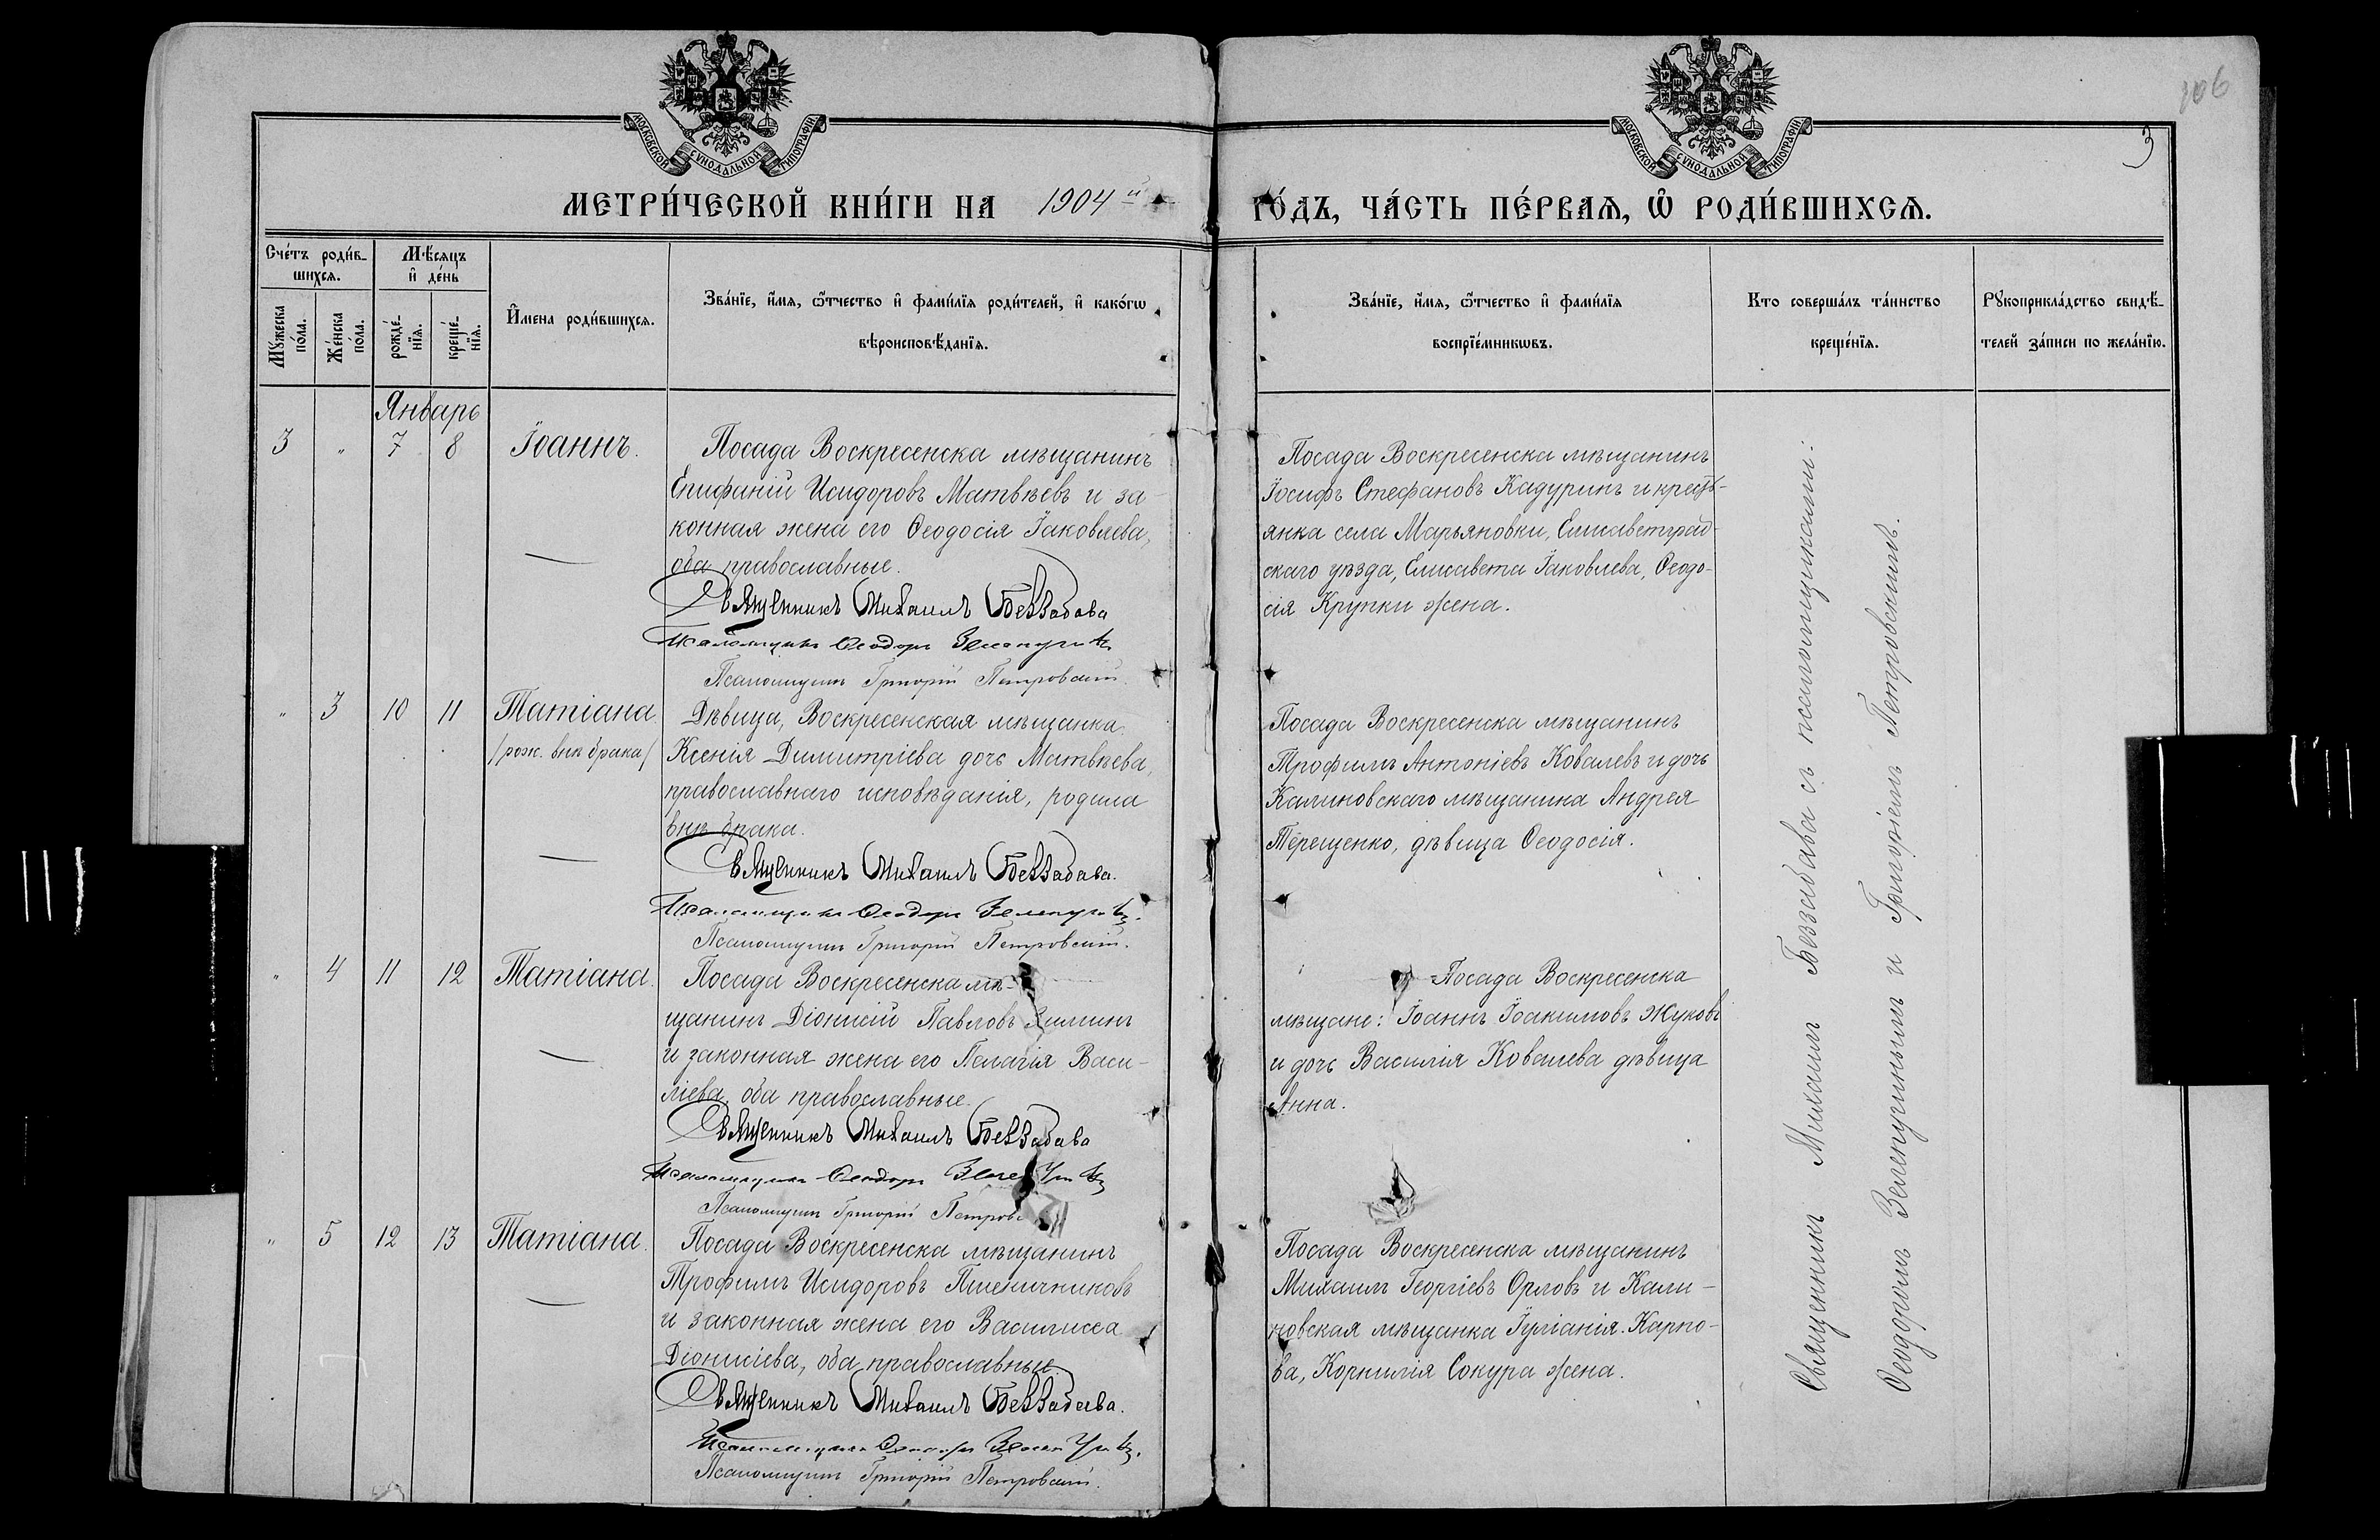 106
3
МОСКОВСКОЙ СѴНОДАЛЬНОЙ ТИПОГРАФІИ
МОСКОВСКОЙ СѴНОДАЛЬНОЙ ТИПОГРАФІИ
МЕТРИ́ЧЕСКОЙ КНИ́ГИ НА 1904й
ГО́ДЪ, ЧА́СТЬ ПЕ́РВАѦ, Ѽ РОДИ́ВШИХСѦ.
Сче́тъ роди́в-
шихсѧ.
Мꙋ́жеска по́ла.
Же́нска по́ла.
Мѣ́сѧцъ
и҆ де́нь
рожде́-
нїѧ.
креще́-
нїѧ.
И҆мена роди́вшихсѧ.
Зва́нїе, и҆́мѧ, ѻ҆́тчество и҆ фами́лїѧ роди́телей, и҆ како́гѡ
вѣроисповѣ́данїѧ.
Зва́нїе, и҆́мѧ, ѻ҆́тчество и҆ фами́лїѧ
воспрїе́мникѡвъ.
Кто соверша́лъ та́инство
креще́нїѧ.
Рꙋкоприкла́дство свидѣ́-
телей за́писи по жела́нїю.
Январь
3 " 7 8 Іоаннъ.
Посада Воскресенска мѣщанинъ
Епифаній Исидоровъ Матвѣевъ и за-
конная жена его Ѳеодосія Іаковлева,
оба православные.
Священникъ Михаилъ Беззабава
Псаломщикъ Ѳеодоръ
Псаломщикъ Григорій Петровскій.
Посада Воскресенска мѣщанинъ
Іосифъ Стефановъ Кадуринъ и крестъ-
янка села Марьяновки, Елисаветград-
скаго уѣзда, Елисавета Іаковлева, Ѳеодо-
сія Крупки жена.
" 3 10 11 Татіана.
/рож. внѣ брака/
Дѣвица, Воскресенская мѣщанка
Ксенія Димитріева дочь Матвѣева,
православнаго исповѣданія, родила
внѣ брака.
Священникъ Михаилъ Беззабава.
Псаломщикъ Ѳеодоръ
Псаломщикъ Григорій Петровскій.
Посада Воскресенска мѣщанинъ
Трофимъ Антоніевъ Ковалевъ и дочь
Калиновскаго мѣщанина Андрея
Терещенко, дѣвица Ѳеодосія.
" 4 11 12 Татіана.
Посада Воскресенска мѣ-
щанинъ Діонисій Павловъ Зиминъ
и законная жена его Пелагія Васи-
ліева, оба православные.
Священникъ Михаилъ Беззабава
Псаломщикъ Ѳеодоръ
Псаломщикъ Григорій
Посада Воскресенска
мѣщане: Іоаннъ Іоакимовъ Жуковъ
и дочь Василія Ковалева дѣвица
Анна.
" 5 12 13 Татіана.
Посада Воскресенска мѣщанинъ
Трофимъ Исидоровъ Пшеничниковъ
и законная жена его Василисса
Діонисіева, оба православные.
Священникъ Михаилъ Беззабава.
Псаломщикъ Ѳеодоръ
Псаломщикъ Григорій Петровскій.
Посада Воскресенска мѣщанинъ
Михаилъ Георгіевъ Орловъ и Кали-
новская мѣщанка Іуліанія Карпо-
ва, Корнилія Сокура жена.
Священникъ Михаилъ Беззабава съ псаломщиками:
Ѳеодоромъ Зеленугинымъ и Григоріемъ Петровскимъ.